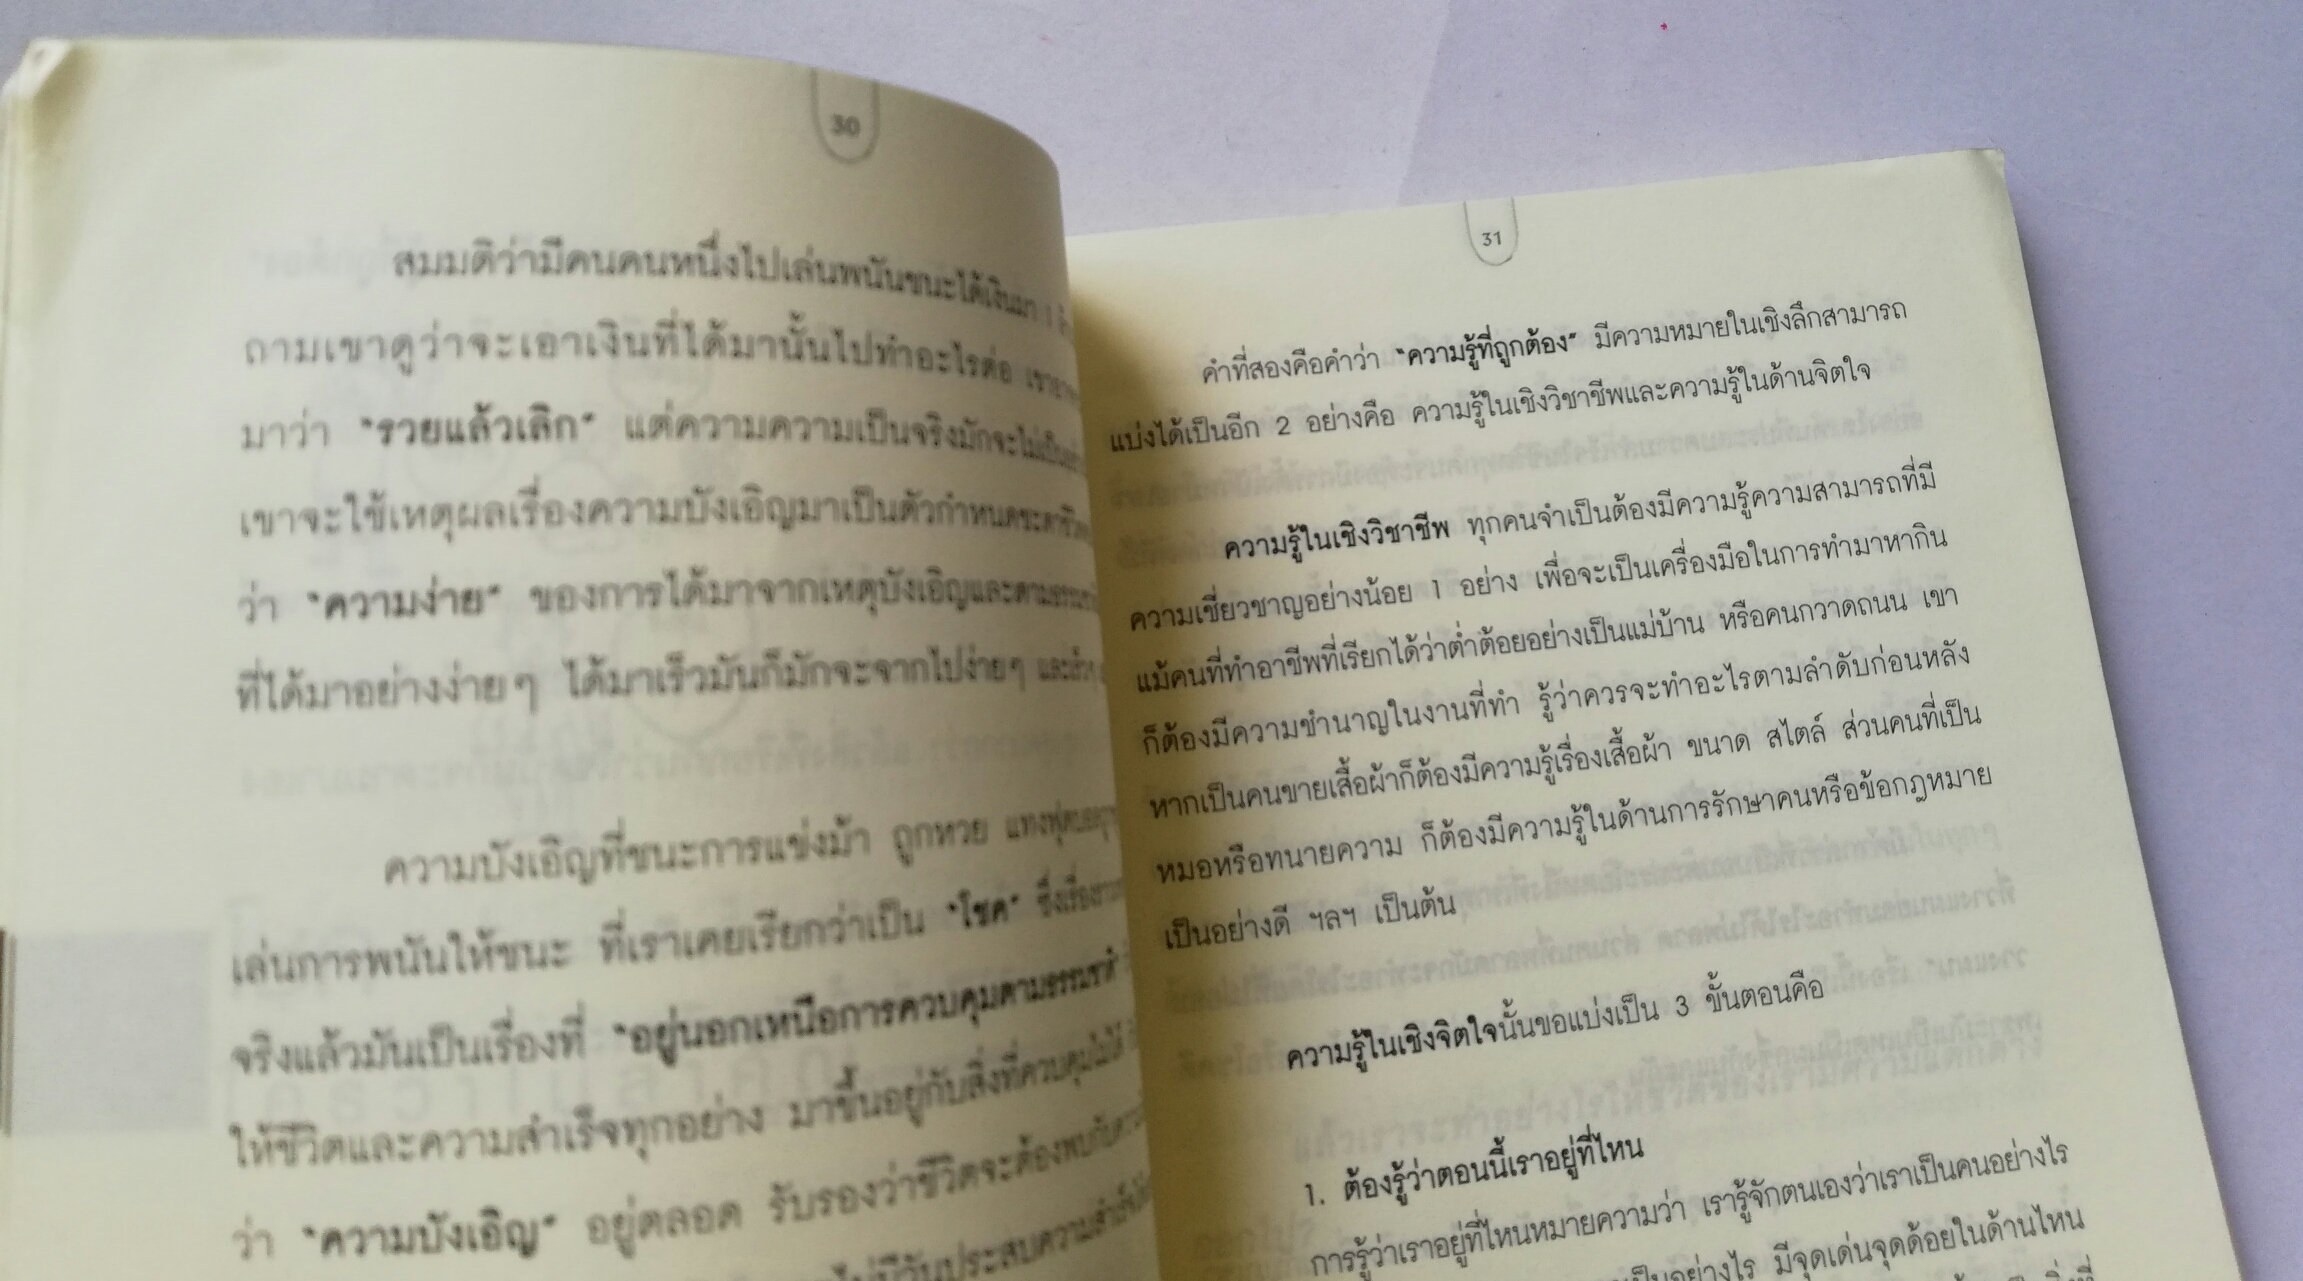 30
สมมติว่ามีคนคนหนึ่งไปเล่นพนันชนะได้เงินมา 1
ถามเขาดูว่าจะเอาเงินที่ได้มานั้นไปทำอะไรต่อ
มาว่า "รวยแล้วเลิก" แต่ความความเป็นจริงมักจะไม่เป็น
เขาจะใช้เหตุผลเรื่องความบังเอิญมาเป็นตัวกำหนดชะตาชีวิต
ว่า "ความง่าย" ของการได้มาจากเหตุบังเอิญและตามธรรมชาติ
ที่ได้มาอย่างง่ายๆ ได้มาเร็วมันก็มักจะจากไปง่ายๆ และเร็ว
ความบังเอิญที่ชนะการแข่งม้า ถูกหวย แทงฟุตบอลถูก
เล่นการพนันให้ชนะ ที่เราเคยเรียกว่าเป็น "โชค" ซึ่งเรื่อง
จริงแล้วมันเป็นเรื่องที่ "อยู่นอกเหนือการควบคุมตามธรรมชาติ
ให้ชีวิตและความสำเร็จทุกอย่าง มาขึ้นอยู่กับสิ่งที่ควบคุมไม่ได้
ว่า "ความบังเอิญ" อยู่ตลอด รับรองว่าชีวิตจะต้องพบกับความ
ไม่มีวันประสบความสำเร็จ
31
คำที่สองคือคำว่า "ความรู้ที่ถูกต้อง" มีความหมายในเชิงลึกสามารถ
แบ่งได้เป็นอีก 2 อย่างคือ ความรู้ในเชิงวิชาชีพและความรู้ในด้านจิตใจ
ความรู้ในเชิงวิชาชีพ ทุกคนจำเป็นต้องมีความรู้ความสามารถที่มี
ความเชี่ยวชาญอย่างน้อย 1 อย่าง เพื่อจะเป็นเครื่องมือในการทำมาหากิน
แม้คนที่ทำอาชีพที่เรียกได้ว่าต่ำต้อยอย่างเป็นแม่บ้าน หรือคนกวาดถนน เขา
ก็ต้องมีความชำนาญในงานที่ทำ รู้ว่าควรจะทำอะไรตามลำดับก่อนหลัง
หากเป็นคนขายเสื้อผ้าก็ต้องมีความรู้เรื่องเสื้อผ้า ขนาด สไตล์ ส่วนคนที่เป็น
หมอหรือทนายความ ก็ต้องมีความรู้ในด้านการรักษาคนหรือข้อกฎหมาย
เป็นอย่างดี ฯลฯ เป็นต้น
ความรู้ในเชิงจิตใจนั้นขอแบ่งเป็น 3 ขั้นตอนคือ
1. ต้องรู้ว่าตอนนี้เราอยู่ที่ไหน
การรู้ว่าเราอยู่ที่ไหนหมายความว่า เรารู้จักตนเองว่าเราเป็นคนอย่างไร
เป็นอย่างไร มีจุดเด่นจุดด้อยในด้านไหน